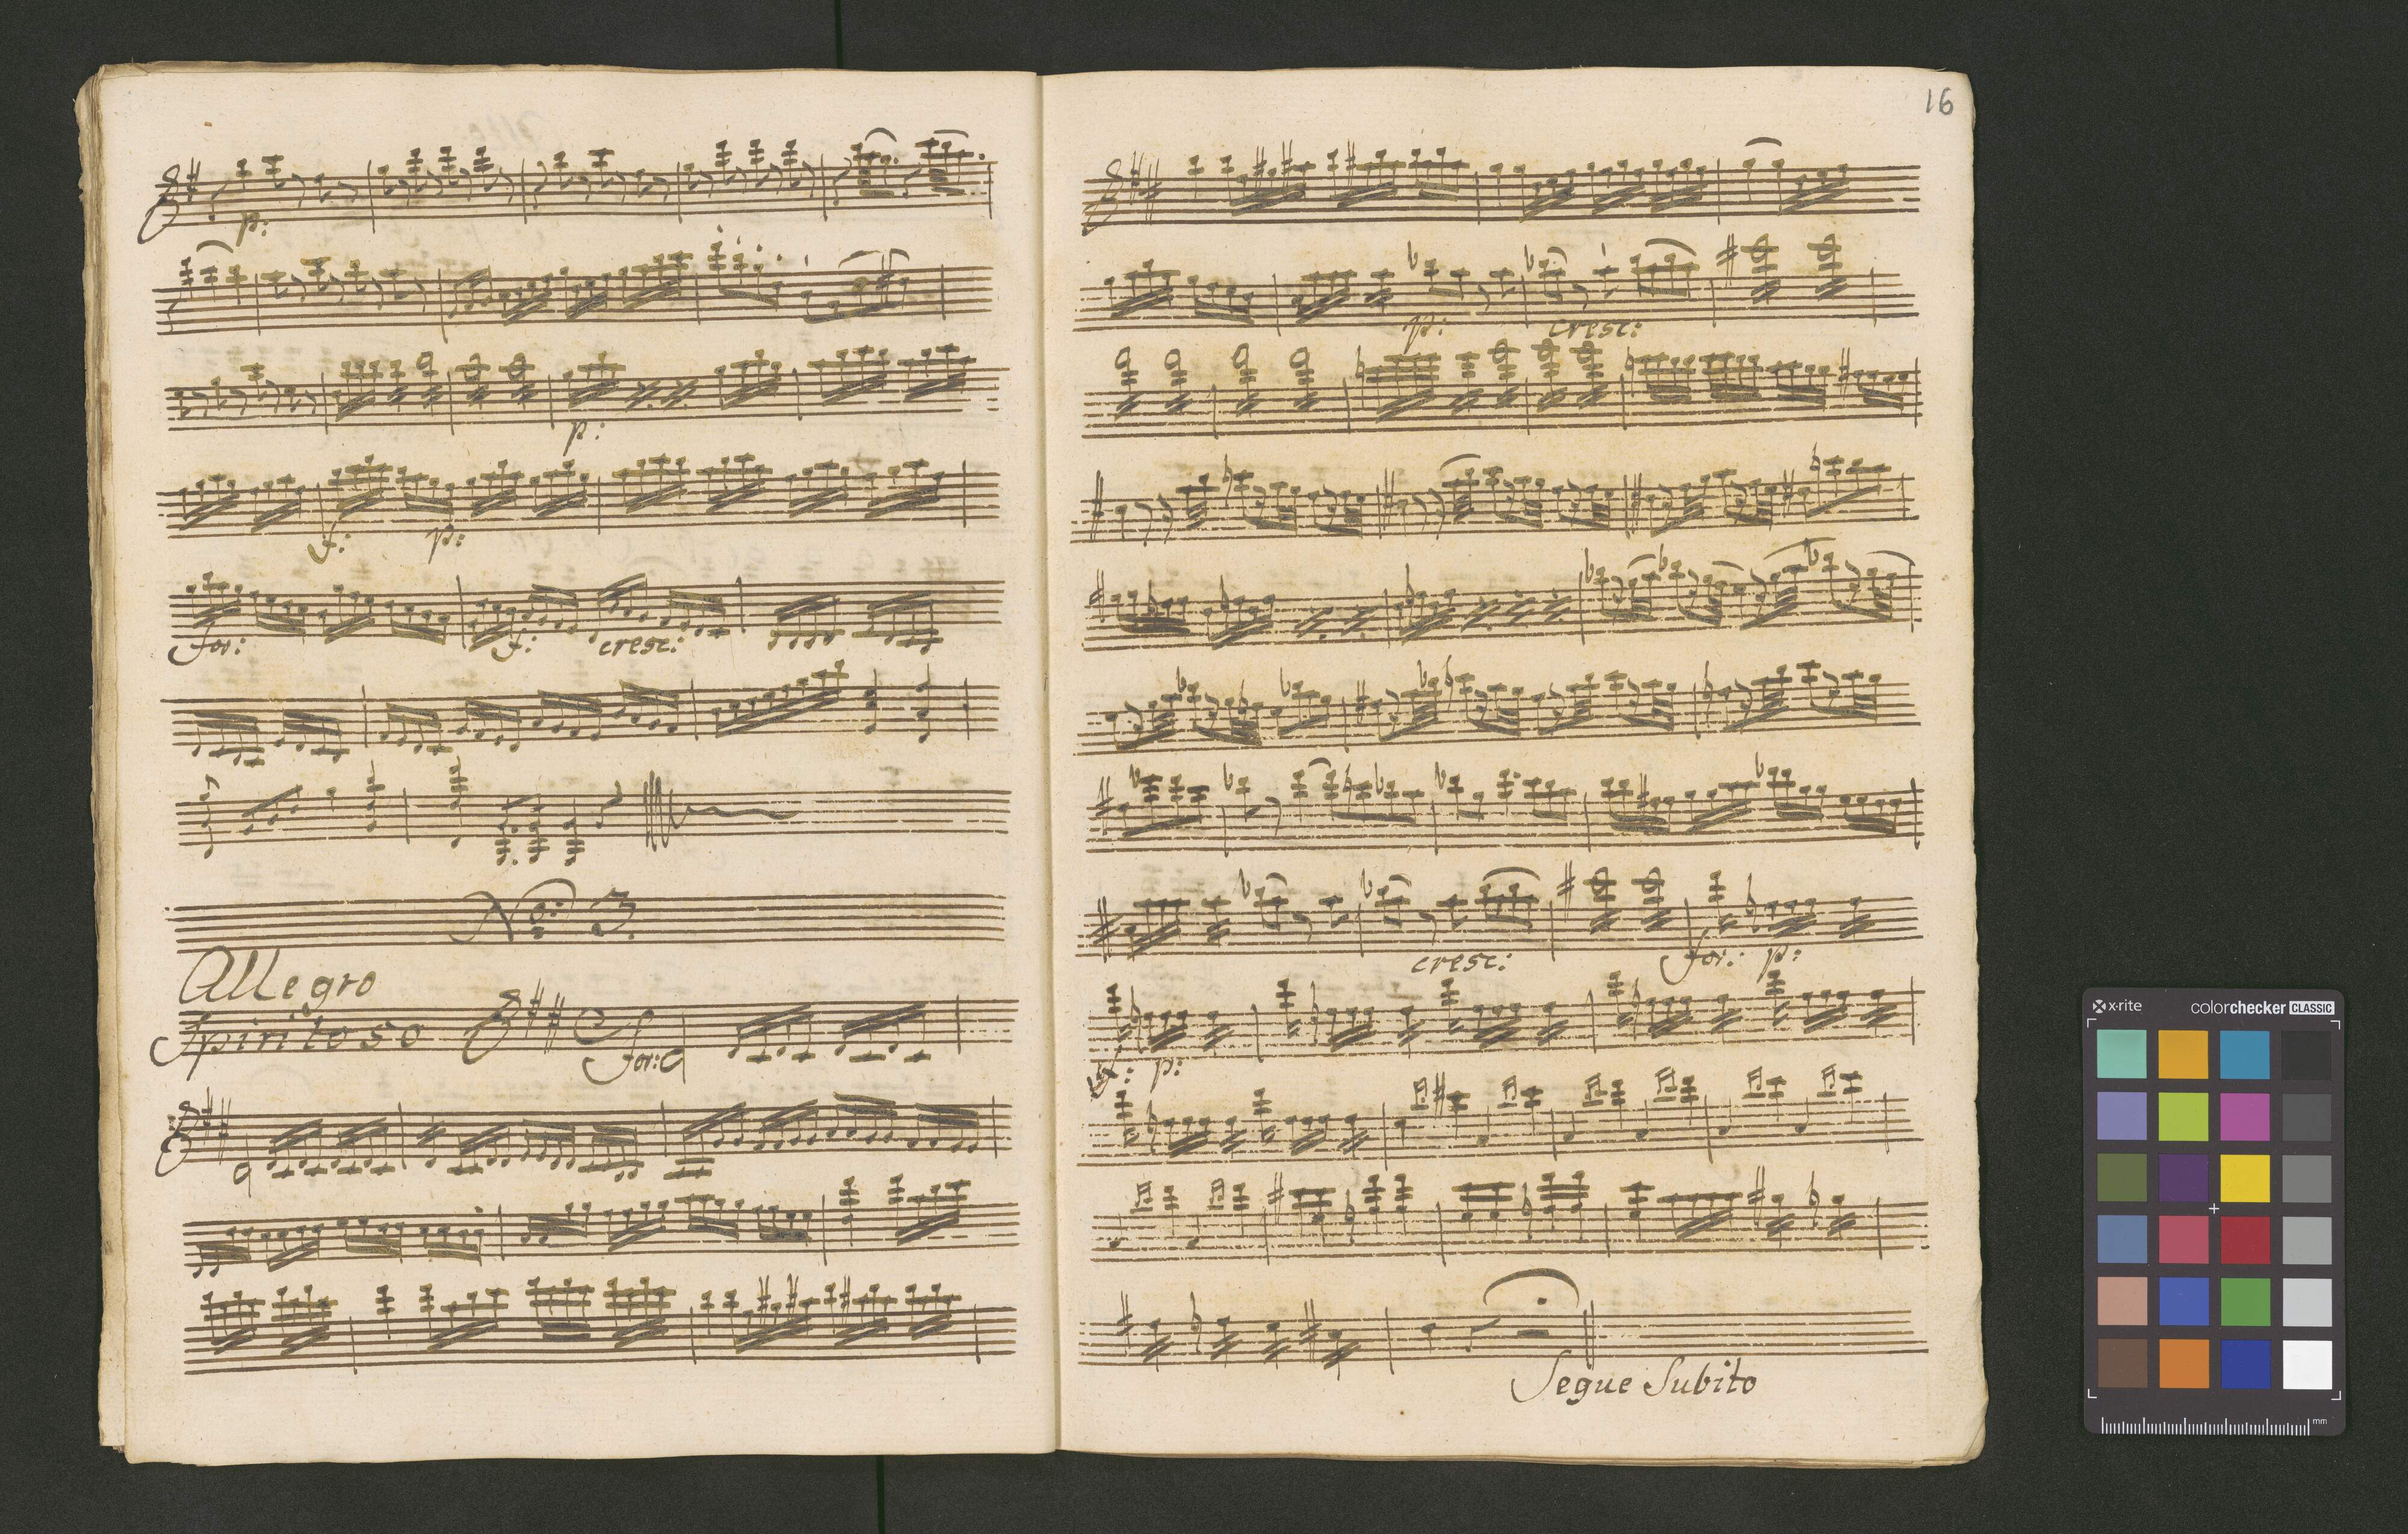 p:
p:
f: p:
for: f: cresc:
No: 3.
Allegro
Spiritoso for:
16
p: cresc:
cresc: for: p:
f: p:
Segue Subito
x-rite colorchecker CLASSIC
mm